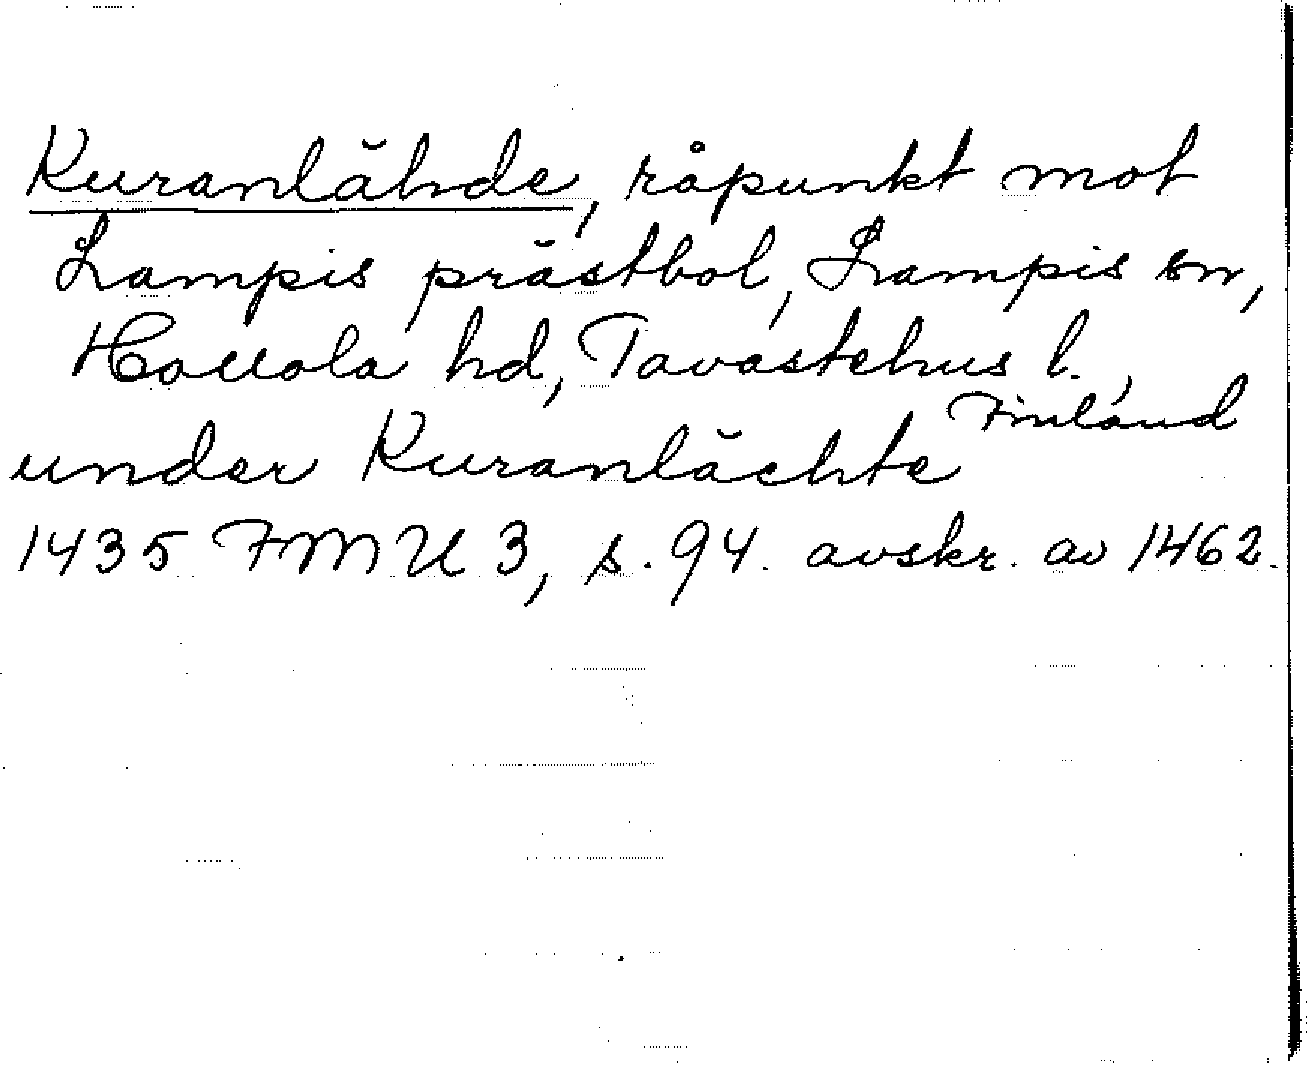 Kuranlähde, råpunkt mot
Lampis prästbol, Lampis sn,
Hollola hd, Tavastehus l.,
Finland
under Kuranlächte
1435 FMU 3, s. 94. avskr. av 1462.